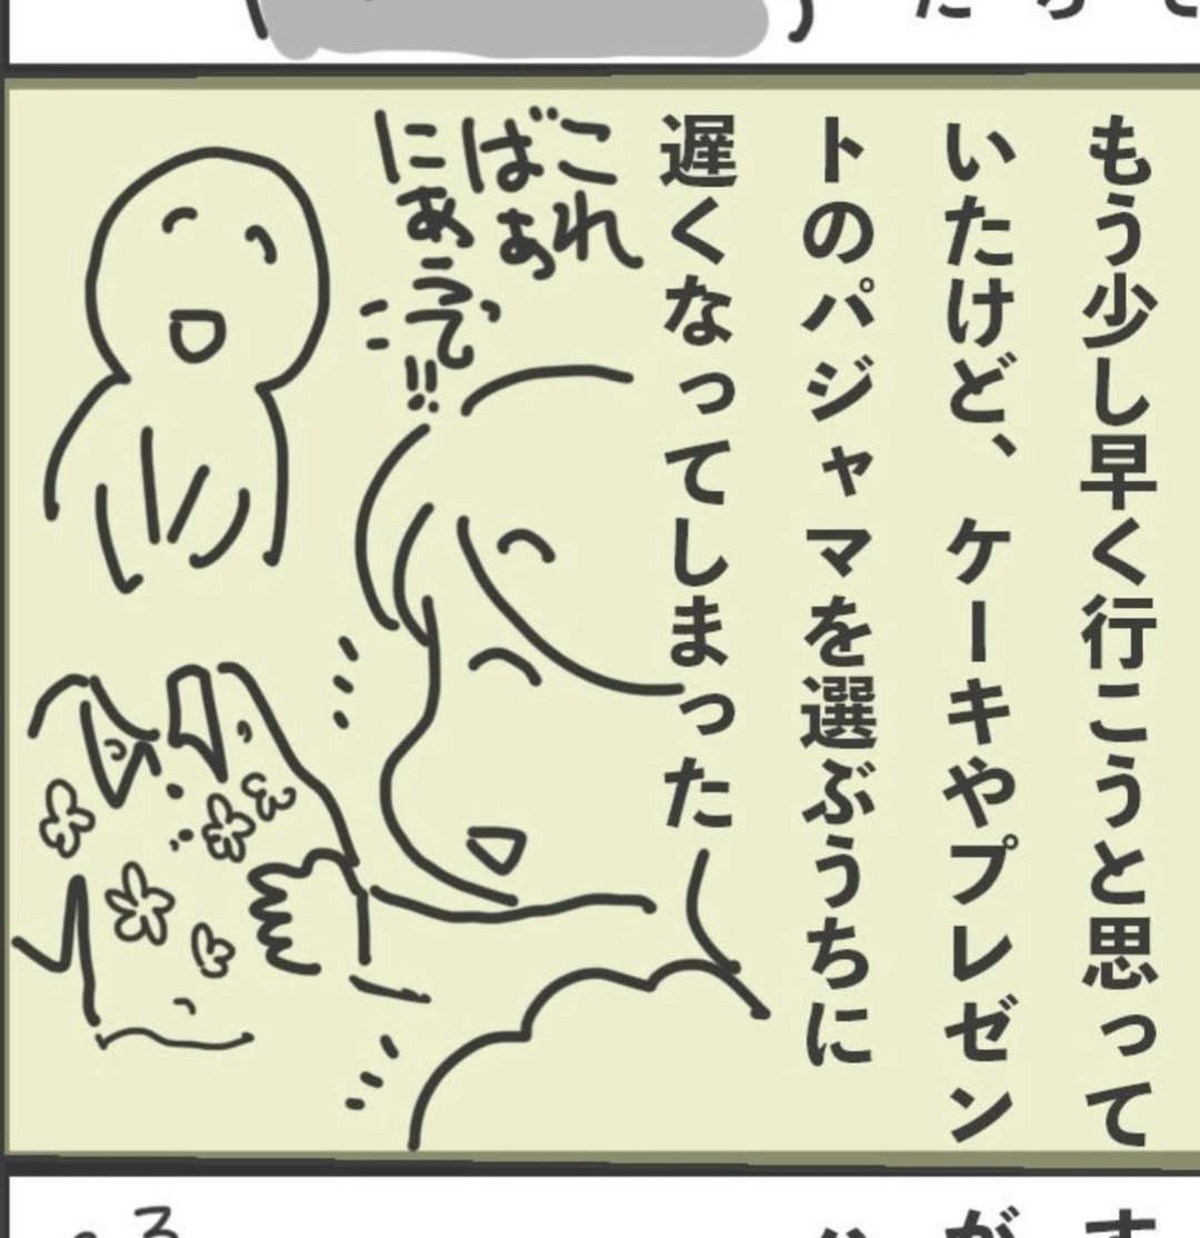 もう少し早く行こうと思って
いたけど、ケーキやプレゼン
トのパジャマを選ぶうちに
遅くなってしまった
これ
ばぁ
にあうて!!